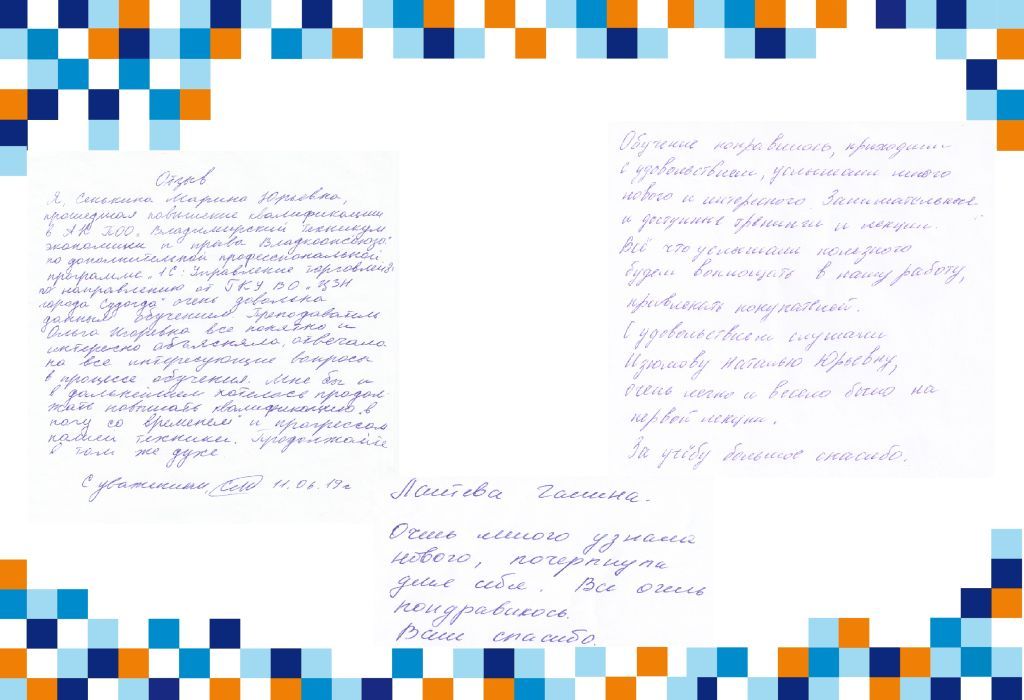 Отзыв
Я, Сенькина Марина Юрьевна,
прошедшая повышение квалификации
в АН ПОО „Владимирский техникум
экономики и права Владкоопсоюза"
по дополнительной профессиональной
программе „1С: Управление торговлей"
по направлению от ГКУ ВО „ЦЗН
города Судогда" очень довольна
данным обучением. Преподаватель
Ольга Игоревна все понятно и
интересно объясняла, отвечала
на все интересующие вопросы
в процессе обучения. Мне бы и
в дальнейшем хотелось продол-
жать повышать квалификацию „в
ногу со временем" и прогрессом
нашей техники. Продолжайте
в том же духе.
С уважением, 11.06.19г.
Обучение понравилось, приходили
с удовольствием, услышали много
нового и интересного. Занимательные
и доступные тренинги и лекции.
Всё что услышали полезного
будем воплощать в нашу работу,
привлекать покупателей.
С удовольствием слушали
Изюмову Наталью Юрьевну,
очень легко и весело было на
первой лекции.
За учёбу большое спасибо.
Галина.
Очень много узнала
нового, почерпнула
для себя. Все очень
пондравилось.
Вам спасибо.